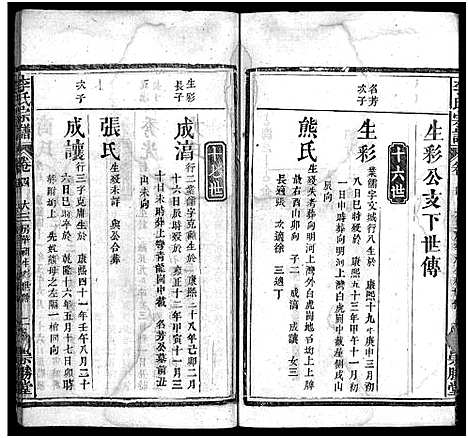 生彩公支下世傳
十六世
名芳次子
生彩
業儒字文城行八生於 康熙一十九年庚申三月初
八日巳時殁於 康熙五十三年甲午十一月初
三日寅時葬向明河上灣外白虎崗中截座剛戌山
辰向
熊氏
生殁未詳葬向明河上灣白虎崗上牌
子二 成淯 成讓 女三
長適張 次適徐 三適丁
十七世
生彩長子
成淯
行一業儒字克 康熙二十八年己巳二月
十六日辰時殁於 雍正十二年甲寅十一月初
十日未時葬上灣青龍崗中截 名芳公墓前丑
山未向
張氏
生殁未詳 與公合葬
次子
成讓
行三字克庸生於 康熙四十一年壬午八月二十
六日巳時殁於 乾隆十六年五月十七日卯時
葬 先奴熊母之左隔一 同向
李氏宗譜
卷四
崇勝堂